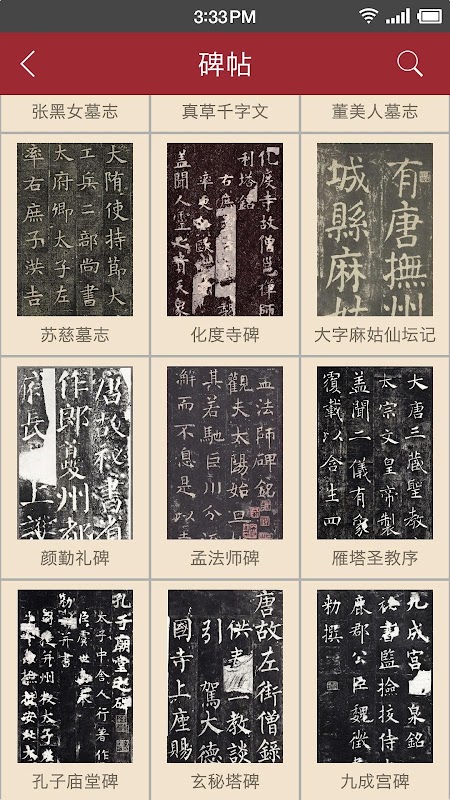 3:33PM
碑帖
张黑女墓志
真草千字文
董美人墓志
大隋使持節大
工兵二部尚書
太府卿太子左
率右庶子洪吉
苏慈墓志
化度寺故僧邕禪師
利塔銘
右庶
率更
蓋聞人靈之貴天象
化度寺碑
有唐撫州
城縣麻姑
大字麻姑仙坛记
唐故秘書省
作郎夔州都
府長 上護
颜勤礼碑
孟法師碑銘
觀夫太陽始旦
其若馳巨川分
澥而不息是
孟法师碑
大唐三藏聖教
太宗文皇帝製
蓋聞二儀有象
覆載以含生四
雁塔圣教序
孔子廟堂之碑
太子中舍人行著作
臣虞世南
孔子庙堂碑
唐故左街僧録
供奉 教談
引駕大德
國寺上座賜
玄秘塔碑
九成宮 泉銘
秘書監撿挍侍
鹿郡公臣魏徵
勑撰
九成宫碑